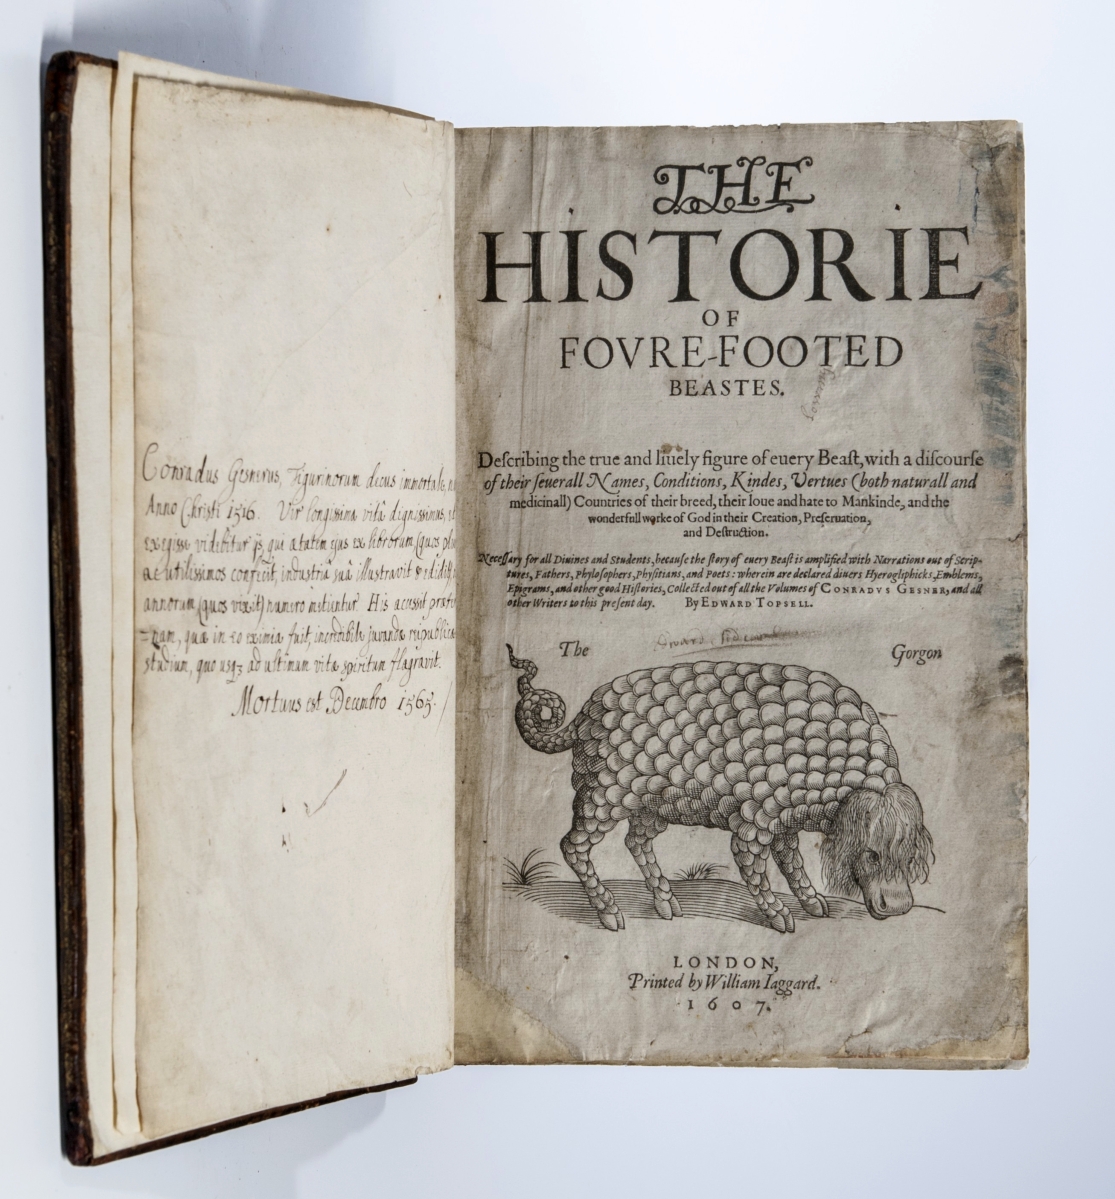 Conradus Gesnerus, Tigurinorum decus immortale, na
Anno Christi 1516. Vir longissima vitâ dignissimus, et
exegisse vidēbitur qui ætatem ejus ex librorum (quos plu
ac utilissimos conjecit, industriâ suâ illustravit & edidit)
annorum (quos vixit) numero metientur. His accessit præter
quæ in eo eximia fuit, incredibile juvandæ reipublicæ
studium, quo usq; ad ultimum vitæ spiritum flagravit.
Mortuus est Decembro 1565.
THE
HISTORIE
OF
FOVRE-FOOTED
BEASTES.
Deſcribing the true and liuely figure of euery Beaſt, with a diſcourſe
of their ſeuerall Names, Conditions, Kindes, Vertues (both naturall and
medicinall) Countries of their breed, their loue and hate to Mankinde, and the
wonderfull worke of God in their Creation, Preſeruation,
and Deſtruction.
Neceſſary for all Diuines and Students, becauſe the ſtory of euery Beaſt is amplified with Narrations out of Scrip-
tures, Fathers, Phyloſophers, Phyſitians, and Poets: wherein are declared diuers Hyerogliphicks, Emblems,
Epigrams, and other good Hiſtories, Collected out of all the Volumes of CONRADVS GESNER, and all
other Writers to this preſent day. By EDWARD TOPSELL.
The Gorgon
LONDON,
Printed by William Iaggard.
1607.